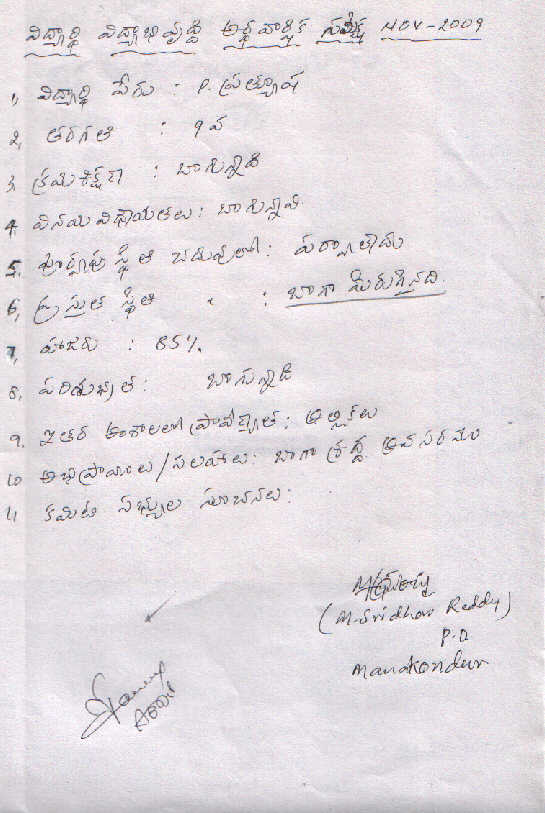 విద్యార్థి విద్యాభివృద్ధి అర్థవార్షిక సమీక్ష NOV-2009
1, విద్యార్థి పేరు : P. ప్రత్యూష
2, తరగతి : 9వ
3, క్రమశిక్షణ : బాగున్నది
4. వినయ విధేయతలు : బాగున్నవి
5. పూర్వపు స్థితి చదువులో : పర్వాలేదు
6, ప్రస్తుత స్థితి " : బాగా మెరుగైనది.
7, హాజరు : 85%
8, పరిశుభ్రత : బాగున్నది
9. ఇతర అంశాలలో ప్రావీణ్యత :
10 అభిప్రాయాలు/సలహాలు : బాగా శ్రద్ధ అవసరము
11 కమిటీ సభ్యుల సూచనలు :
(M. Sridhar Reddy)
P.D
Manakondur